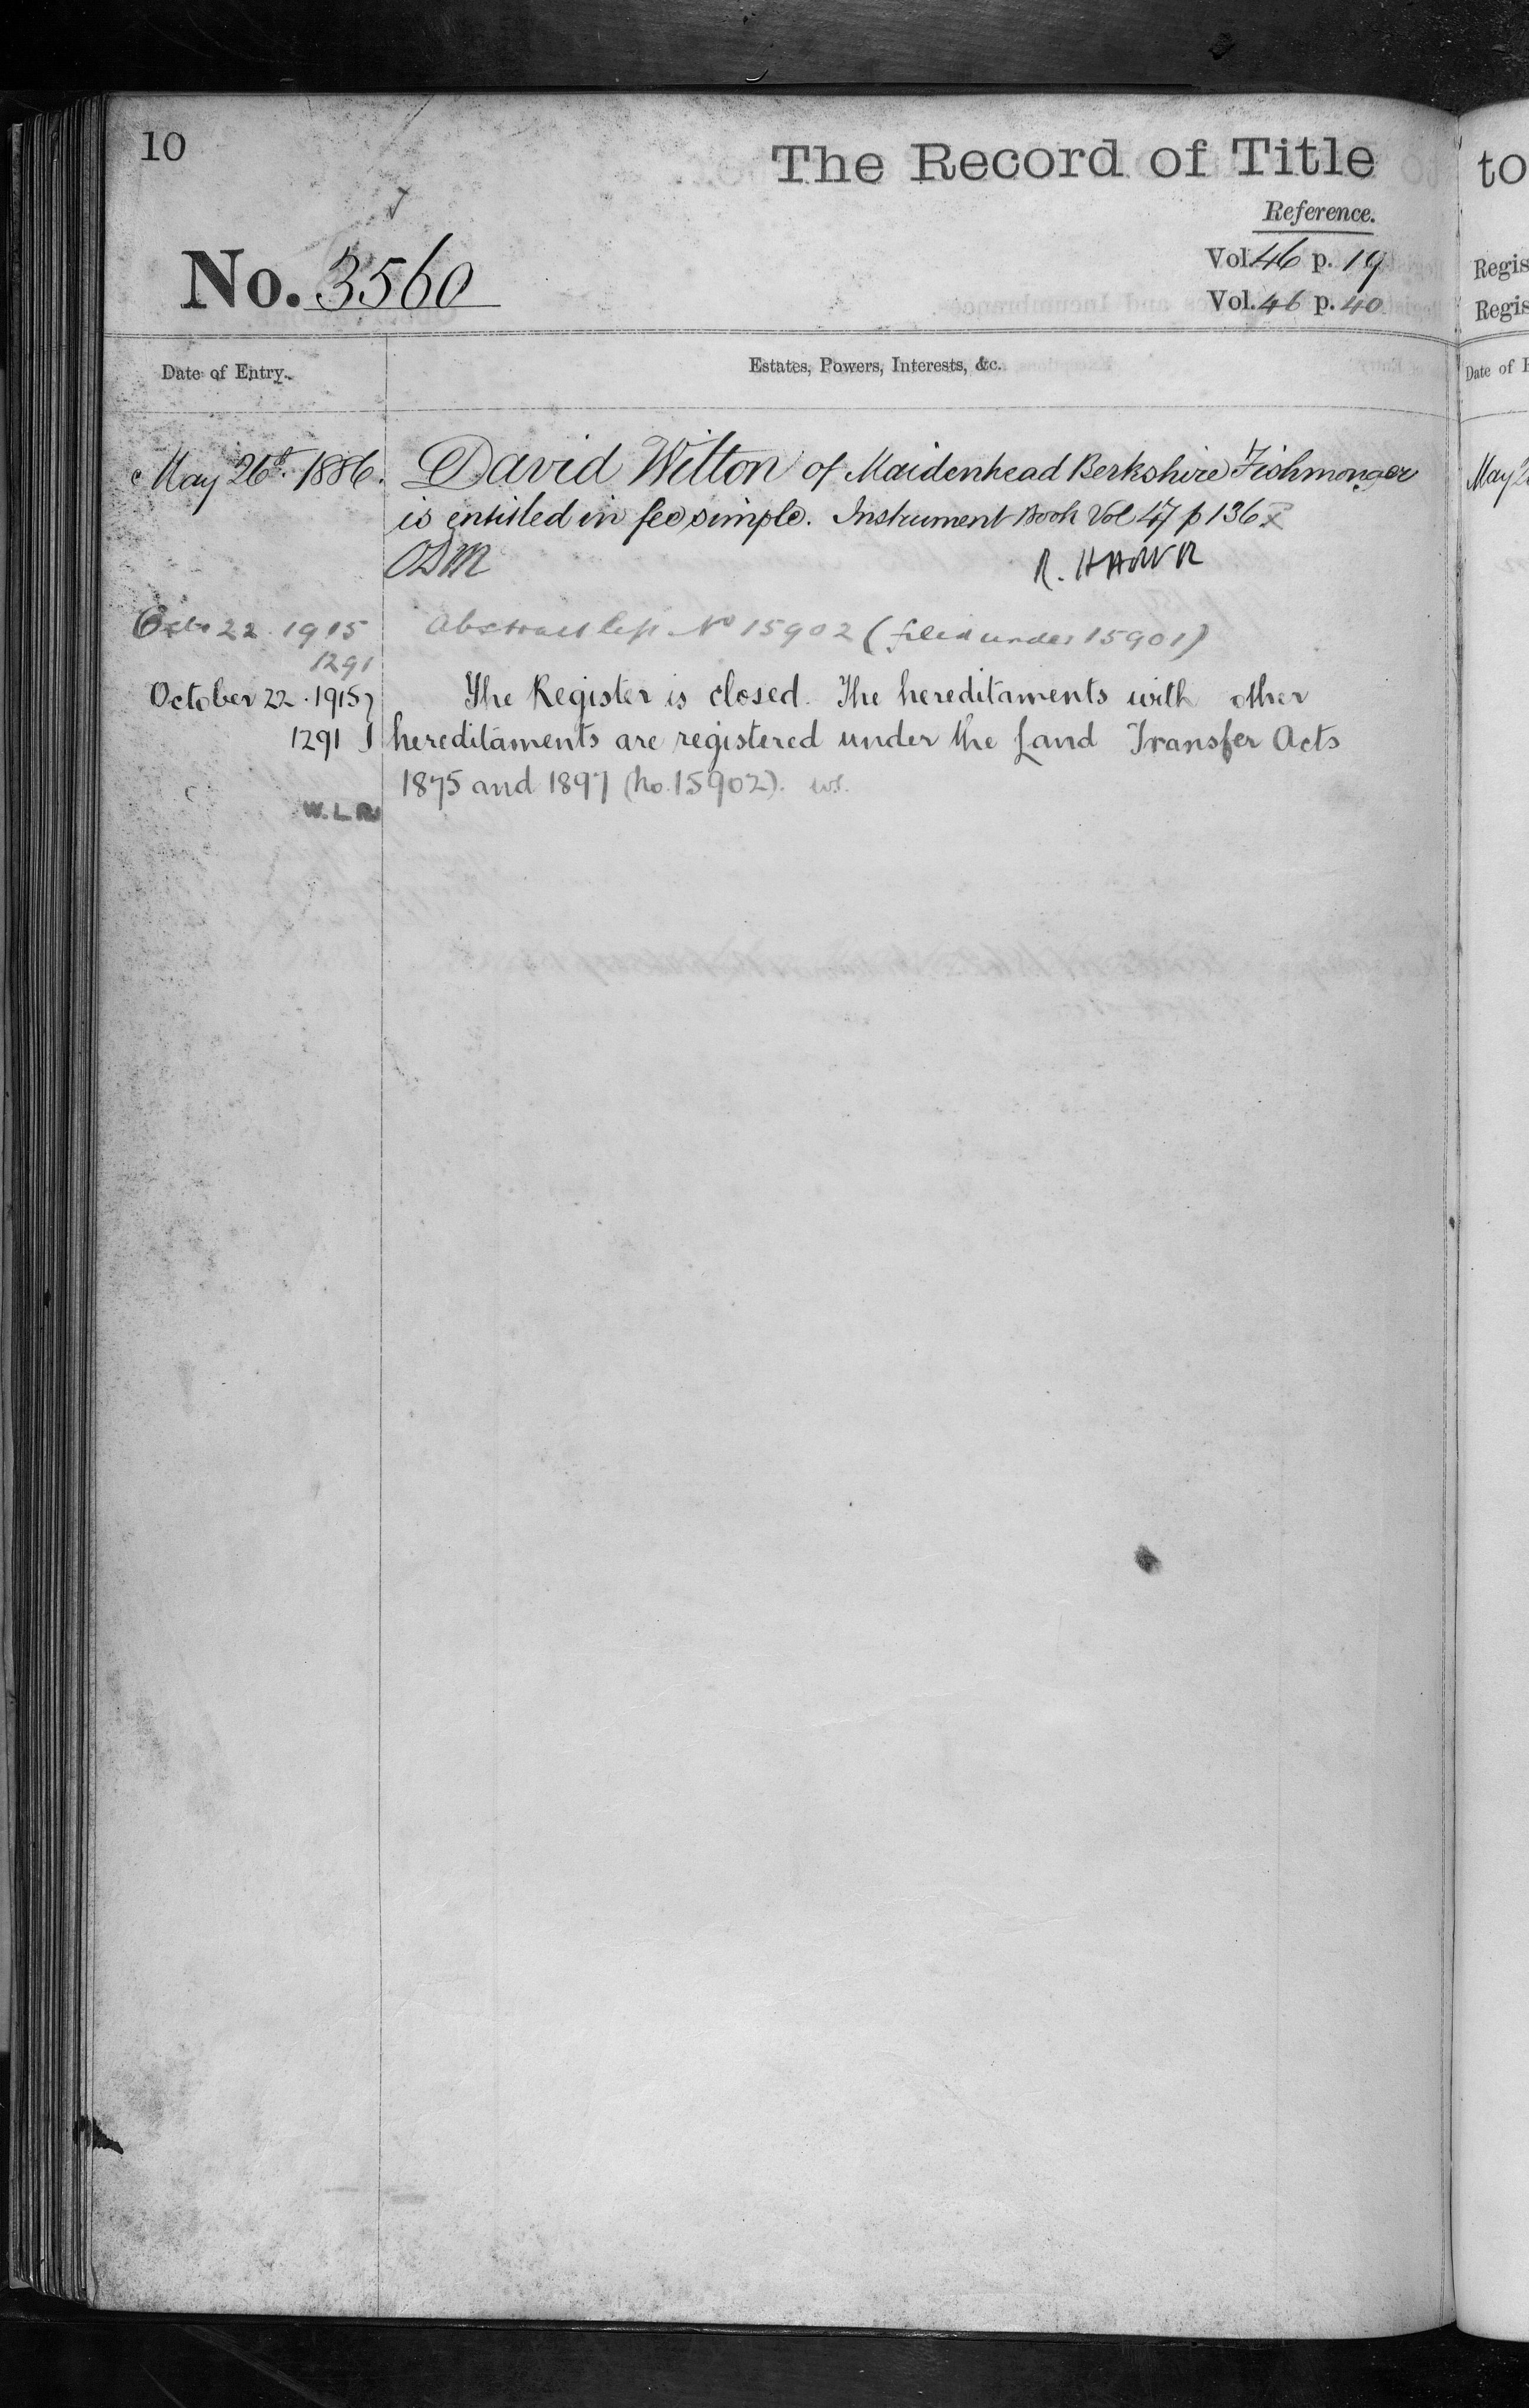 10
The Record of Title
to
Reference.
No. 3560
Vol. 46 p. 19
Vol. 46 p. 40
Regis
Regis
Date of Entry.
Estates, Powers, Interests, &c.
Date of
May 26th. 1886.
David Wilton of Maidenhead Berkshire Fishmonger
is entitled in fee simple. Instrument Book Vol 47 p 136
May 2
Octr 22. 1915
Abstract No 15902 (filed under 15901)
1291
October 22. 1915
The Register is closed. The hereditaments with other
1291
hereditaments are registered under the Land Transfer Acts
1875 and 1897 (No. 15902).
W.L.R.